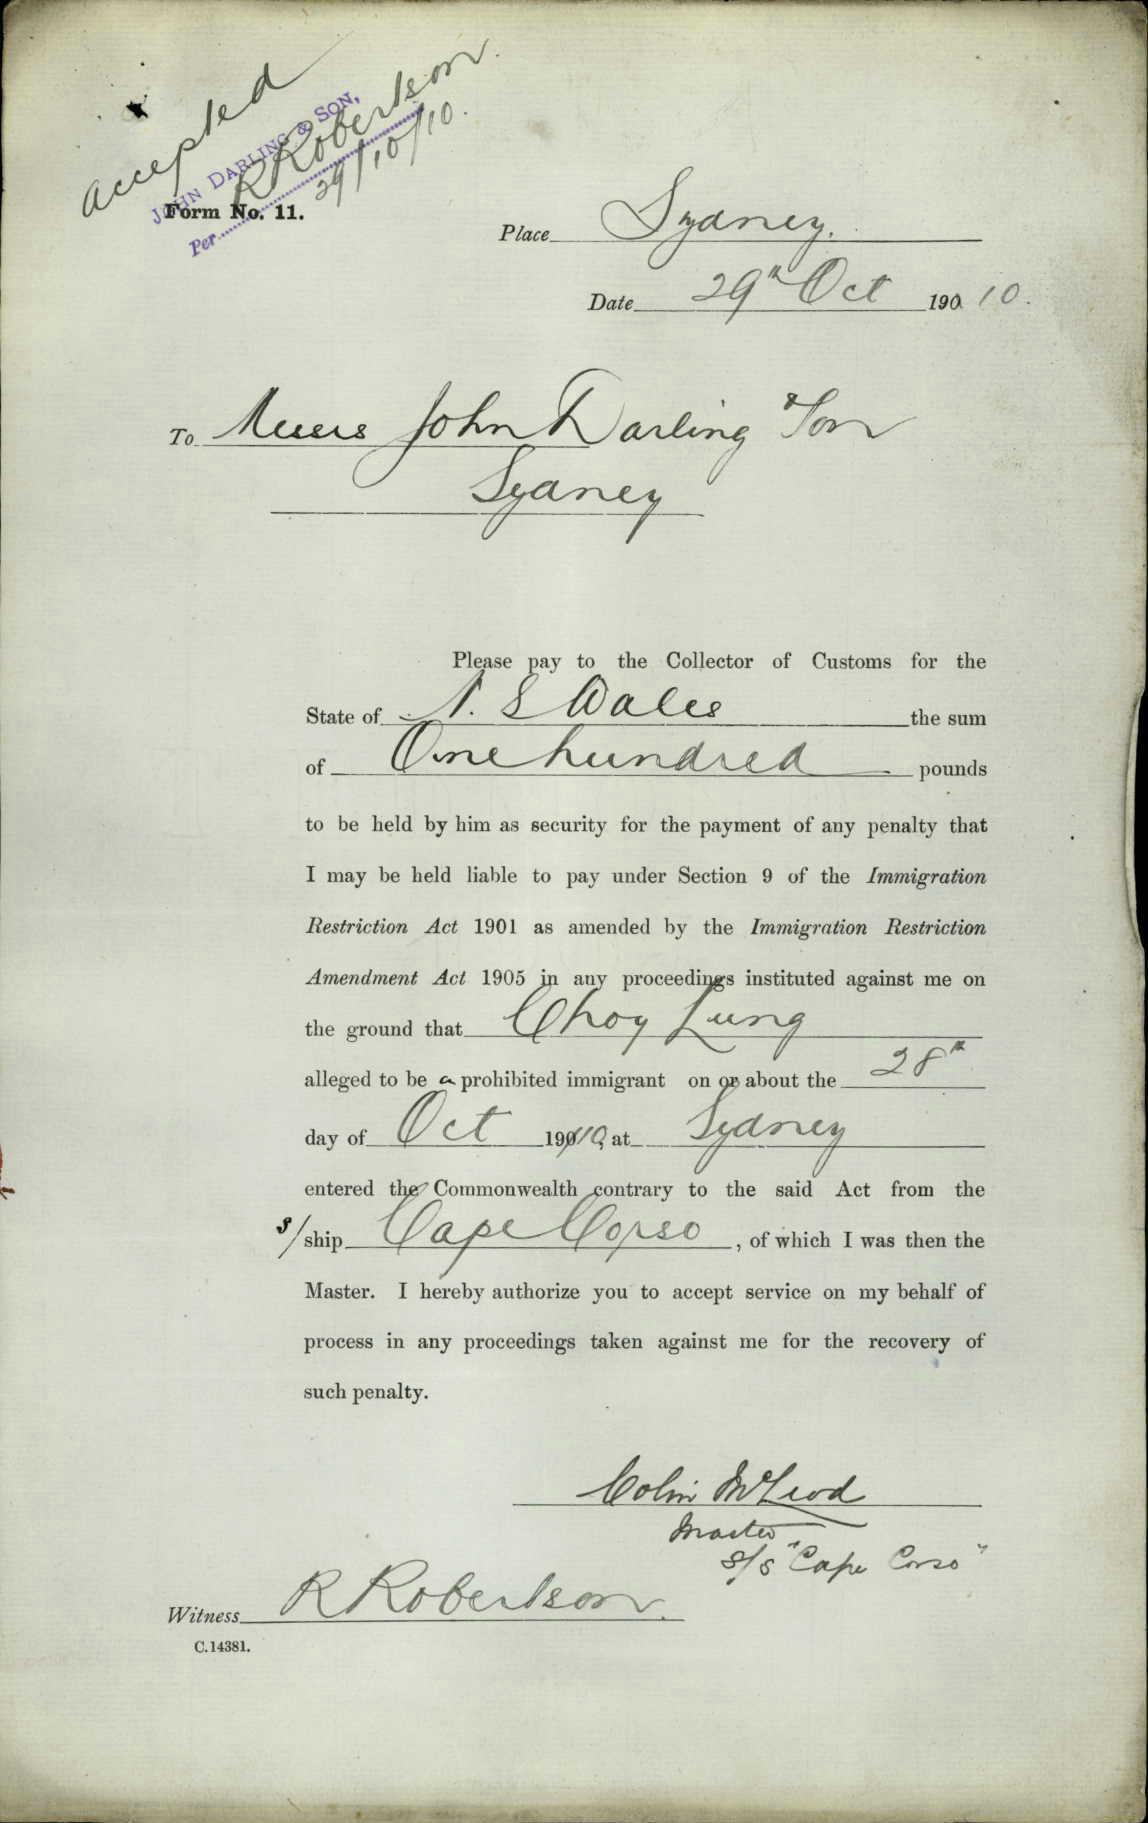 accepted
JOHN DARLING & SON,
R Robertson
Per
29/10/10.
Form No. 11.
Place Sydney.
Date 29th Oct 190 10.
To Messrs John Darling & Son
Sydney
Please pay to the Collector of Customs for the
State of N. S Wales the sum
of One hundred pounds
to be held by him as security for the payment of any penalty that
I may be held liable to pay under Section 9 of the Immigration
Restriction Act 1901 as amended by the Immigration Restriction
Amendment Act 1905 in any proceedings instituted against me on
the ground that Choy Lung
alleged to be a prohibited immigrant on or about the 28th
day of Oct 190 10, at Sydney
entered the Commonwealth contrary to the said Act from the
s/ship Cape Corso, of which I was then the
Master. I hereby authorize you to accept service on my behalf of
process in any proceedings taken against me for the recovery of
such penalty.
Colin McLeod
Master
s/s "Cape Corso"
Witness R Robertson.
C.14381.